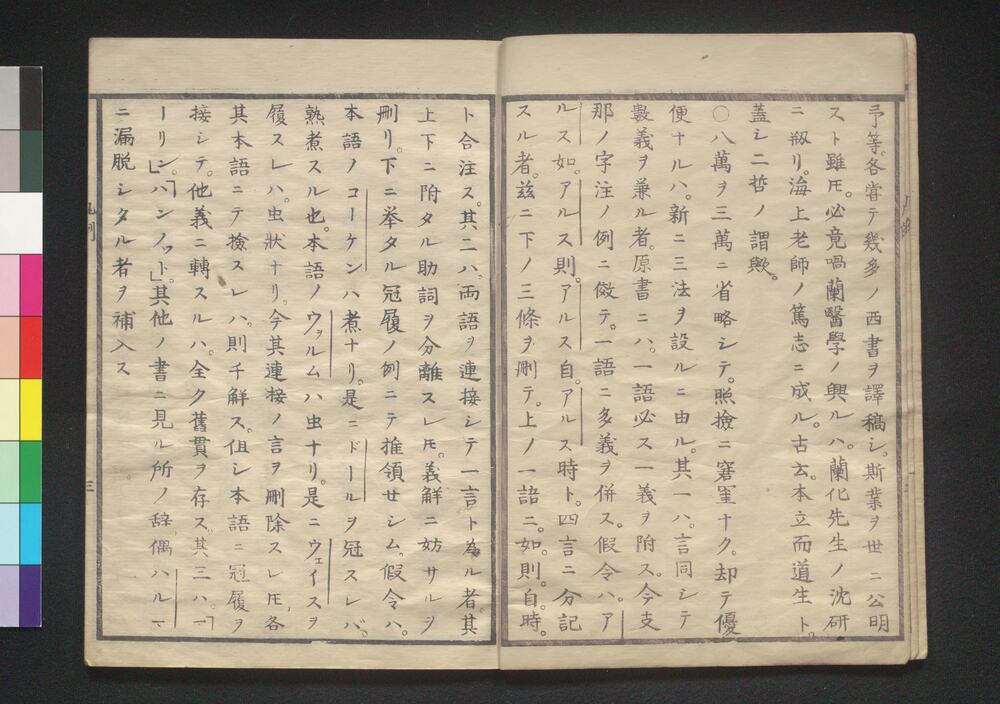 予等。各嘗テ幾多ノ西書ヲ譯稿シ。斯業ヲ世ニ公明
スト雖𪜈。必竟喎蘭醫學ノ興ルハ。蘭化先生ノ沈研
ニ叙リ。海上老師ノ篤志ニ成ル。古云。本立而道生ト。
蓋シ二哲ノ謂歟。
○八萬ヲ三萬ニ省略シテ。照撿ニ窘窒ナク。却テ優
便ナルハ。新ニ三法ヲ設ルニ由ル。其一ハ。言同シテ
數義ヲ兼ル者。原書ニハ。一語必ス一義ヲ附ス。今支
那ノ字注ノ例ニ傚テ。一語ニ多義ヲ併ス。假令ハ。ア
ルス如。アルス則。アルス自。アルス時ト。四言ニ分記
スル者。玆ニ下ノ三條ヲ刪テ。上ノ一語ニ。如。則。自。時。
ト合注ス。其二ハ。両語ヲ連接シテ一言ト為ル者。其
上下ニ附タル助詞ヲ分離スレ𪜈。義解ニ妨サルヲ
刪リ。下ニ举タル冠履ノ例ニテ推領セシム。假令ハ。
本語ノコーケンハ煮ナリ。是ニドールヲ冠スレバ。
熟煮スル也。本語ノウヲルムハ虫ナリ。是ニウェイスヲ
履スレハ。虫狀ナリ。今其連接ノ言ヲ刪除スレ𪜈。各
其本語ニテ撿スレハ。則チ解ス。但シ本語ニ冠履ヲ
接シテ。他義ニ轉スルハ。全ク舊貫ヲ存ス。其三ハ。「
ーリン」。「ハンノット」其他ノ書ニ見ル所ノ辞。偶ハルマ
ニ漏脱シタル者ヲ補入ス
凡例
三